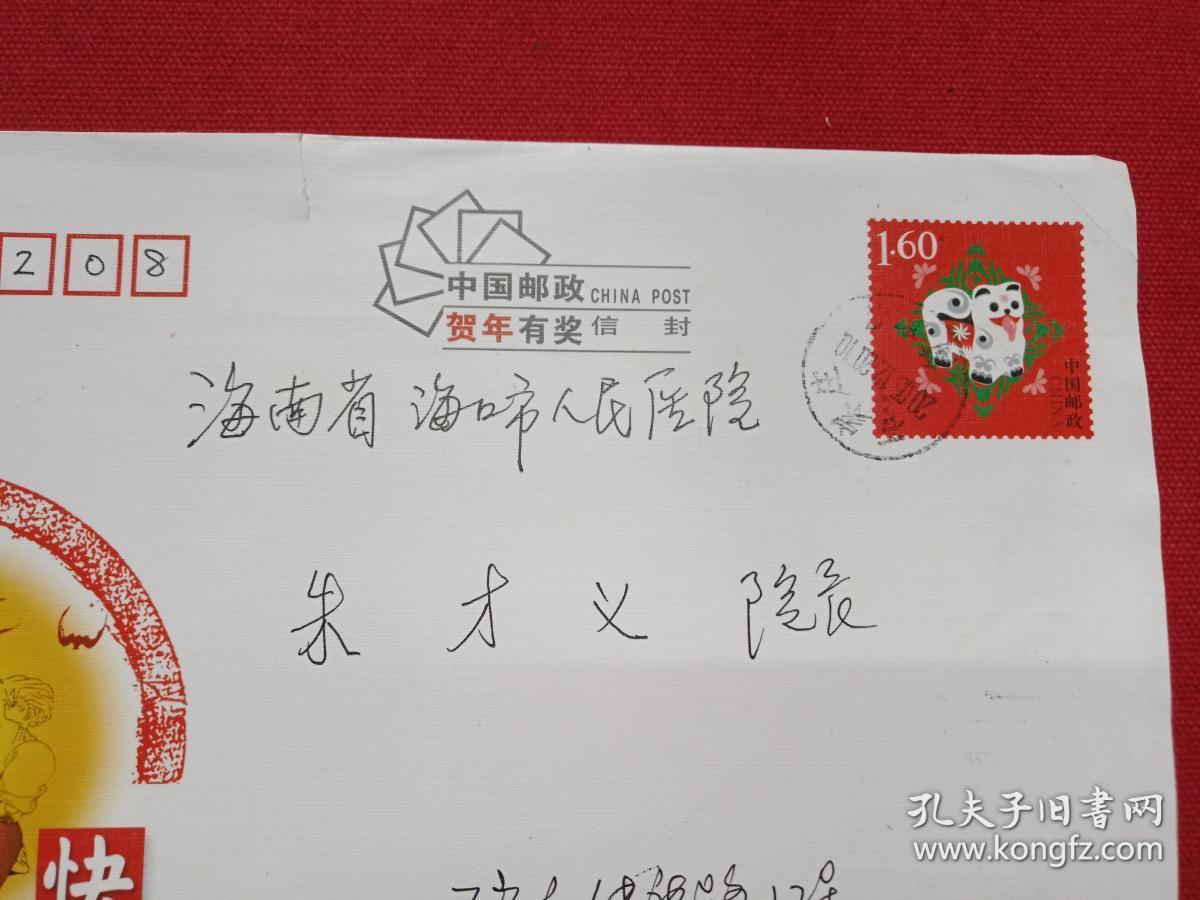 1.60
中国邮政 CHINA POST
贺年有奖信封
2 0 8
中国邮政
CHINA
海南省海口市人民医院
朱才义 院长
快
孔夫子旧书网
www.kongfz.com